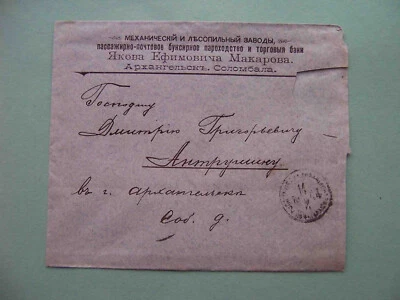 МЕХАНИЧЕСКІЙ И ЛѢСОПИЛЬНЫЙ ЗАВОДЫ,
пассажирно-почтовое буксирное пароходство и торговыя бани
Якова Ефимовича Макарова.
Архангельскъ. Соломбала.
Господину
Дмитрію Григорьевичу
Антрушину
въ г. Архангельскѣ
Соб. д.